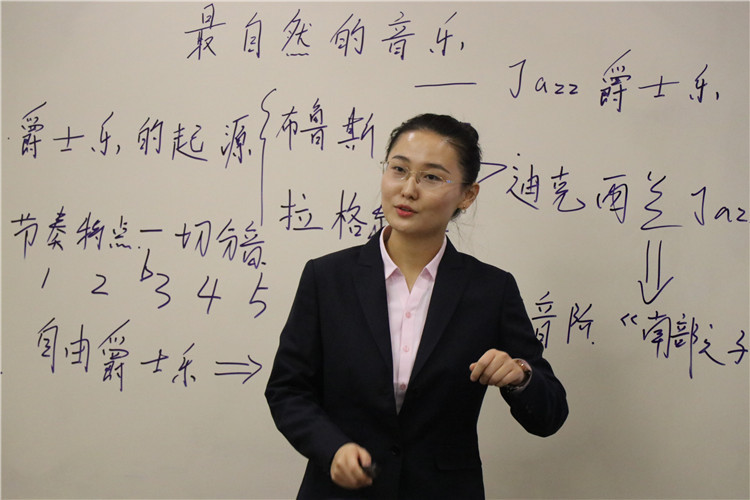 最自然的音乐
—— Jazz 爵士乐
爵士乐的起源 { 布鲁斯
拉格
迪克西兰 Jaz
节奏特点——切分音
1 2 b3 4 5
音阶 《南部之子
自由爵士乐 ⇒